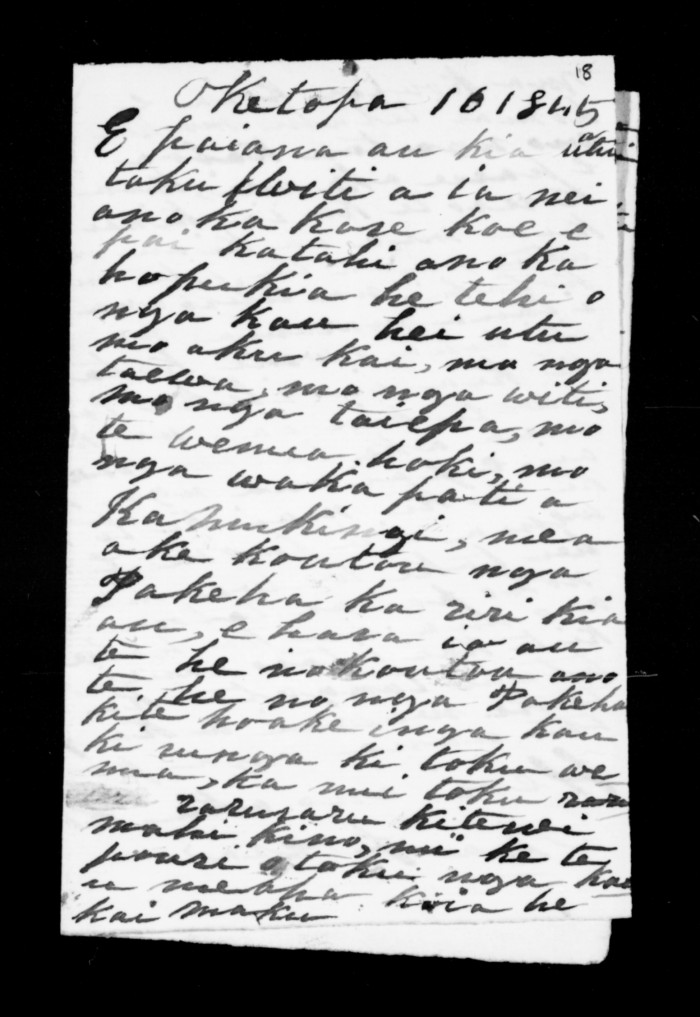 18
Oketopa 16 1845
E paiana au kia utua
toku Witi a ia nei
ano ka kore koe e
pai katahi ano ka
hopukia he tehi o
nga kau hei utu
mo aku kai, mo nga
taewa, mo nga witi,
mo nga taiepa, mo
te wenua hoki, mo
nga waka pati a
Kahukingi, mea
ake koutou nga
Pakeha ka riri kia
au, e hara ia au
te he no koutou ano
te he no nga Pakeha
kite hoake inga kau
ki runga ki toku we
nua, ka nui toku
raruraru kitenei
mahi kino, nui ke te
pouri o toku nga kau
u meapa koia he
kai maku